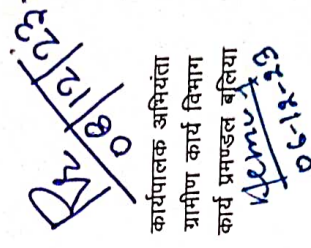 08/12/23
कार्यपालक अभियंता
ग्रामीण कार्य विभाग
कार्य प्रमण्डल बलिया
06-12-23